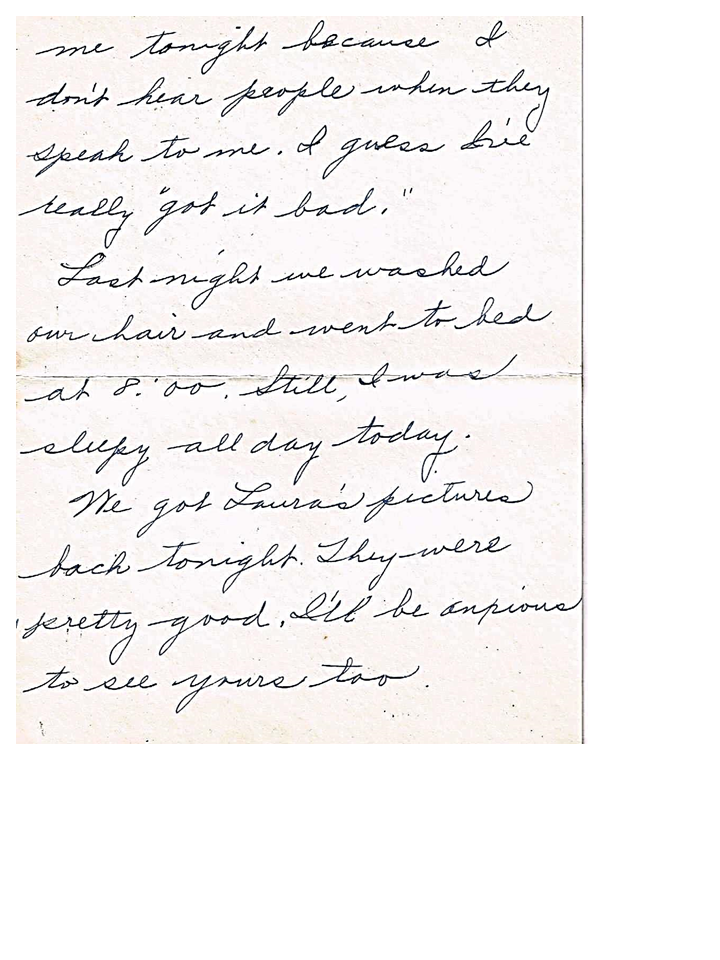 me tonight because I
don't hear people when they
speak to me. I guess I've
really "got it bad."
Last night we washed
our hair and went to bed
at 8:00. Still, I was
sleepy all day today.
We got Laura's pictures
back tonight. They were
pretty good. I'll be anxious
to see yours too.